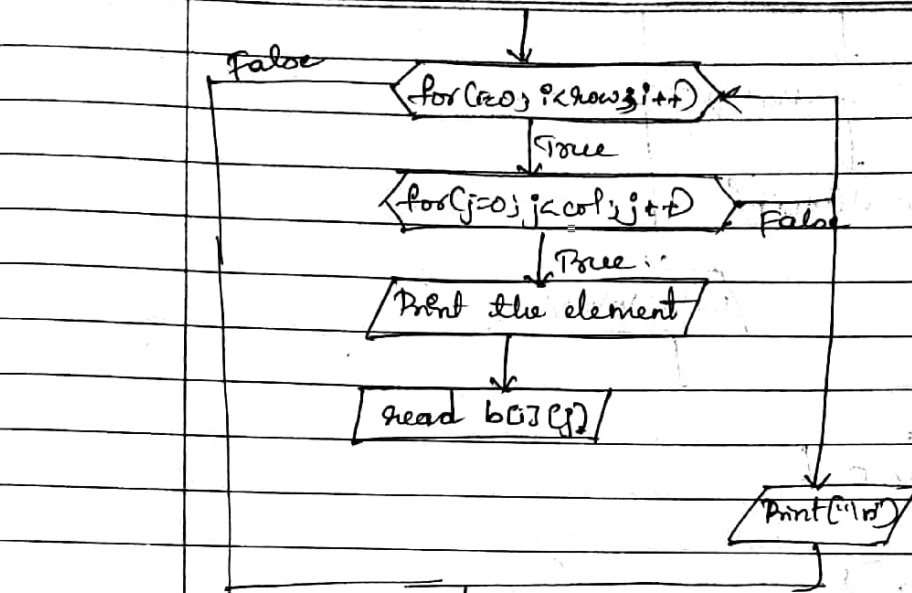 False
for(i=0; i<row; i++)
True
for(j=0; j<col; j++)
False
True
Print the element
read b[i][j]
Print("\n")